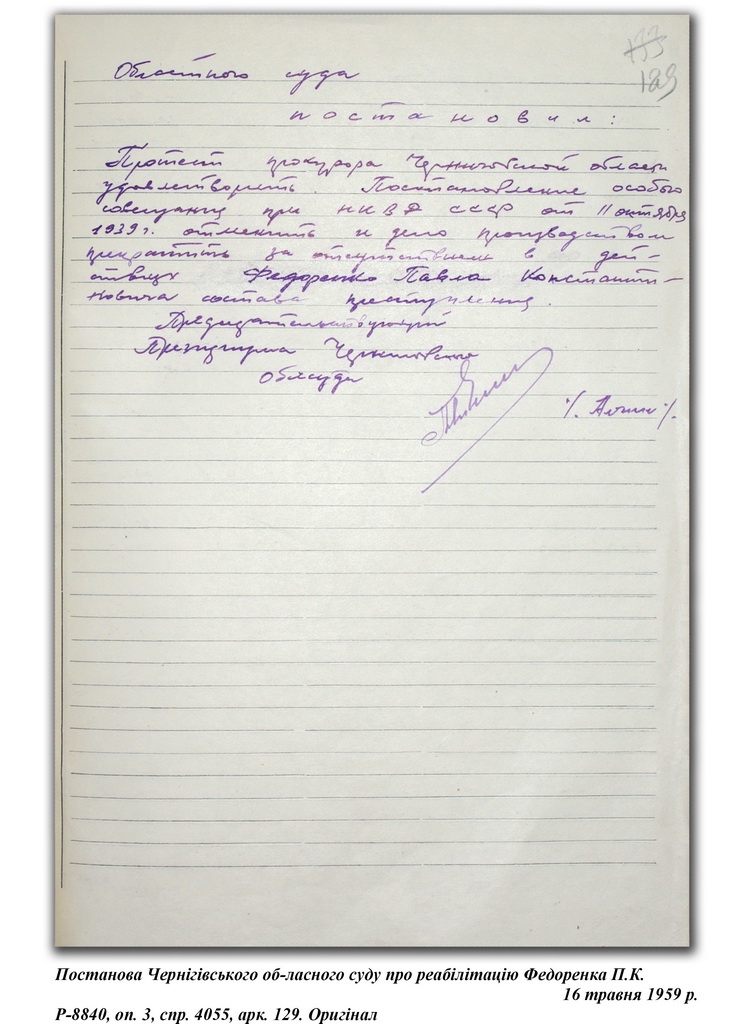 133
129
Областного суда
постановил:
Протест прокурора Черниговской области
удовлетворить. Постановление особого
совещания при НКВД СССР от 11 октября
1939 г. отменить и дело производством
прекратить за отсутствием в дей-
ствиях Федоренко Павла Константи-
новича состава преступления.
Председательствующий
Президиума Черниговского
облсуда
Постанова Чернігівського об-ласного суду про реабілітацію Федоренка П.К.
16 травня 1959 р.
Р-8840, оп. 3, спр. 4055, арк. 129. Оригінал